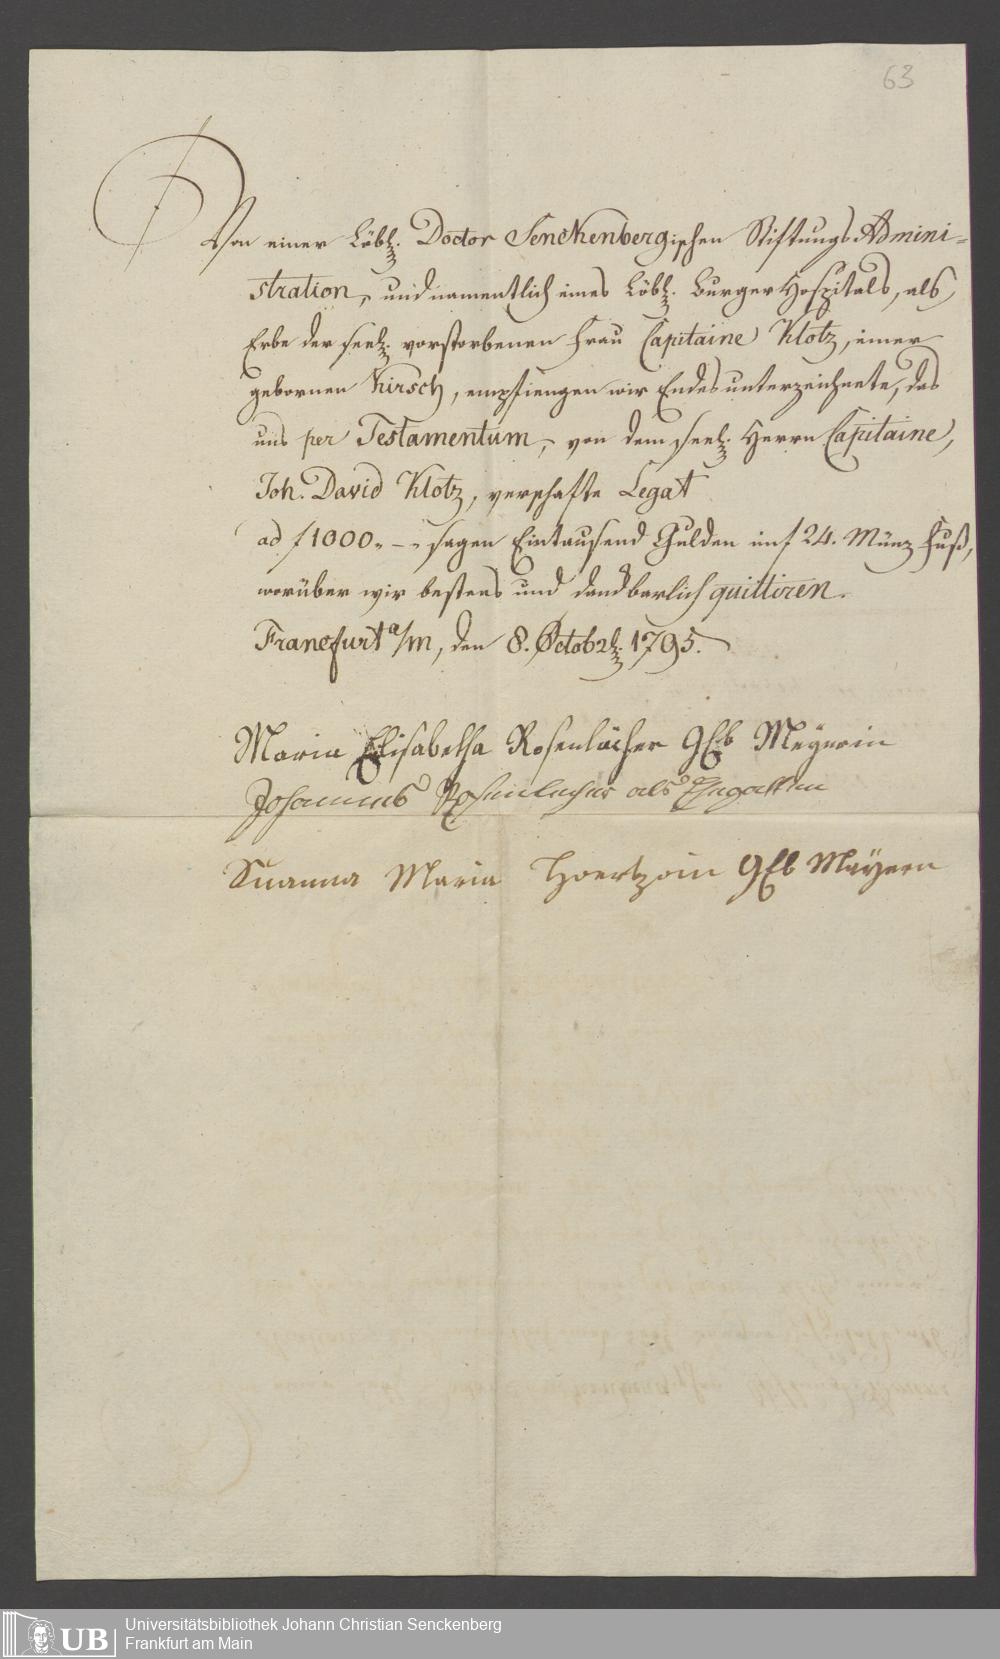 63
Von einer Löbl. Doctor Senckenbergischen Stiftungs Admini-
stration, und namentlich eines Löbl. Burger Hospitals, als
Erbe der seel. verstorbenen Frau Capitaine Klotz, einer
gebornen Kirsch, empfiengen wir Endes unterzeichnete, das
uns per Testamentum, von dem seel. Herrn Capitaine,
Joh. David Klotz, verschafte Legat
ad f 1000. — sagen Eintausend Gulden im f 24. Münz Fuß,
worüber wir bestens und danckbarlich quittiren.
Francfurt a/m, den 8. Octobr. 1795.
Maria Elisabetha Rosenlächer geb Meÿerin
Johannes Rosenlecher als Ehegatten
Suanna Maria geb Maÿern
UB
Universitätsbibliothek Johann Christian Senckenberg
Frankfurt am Main